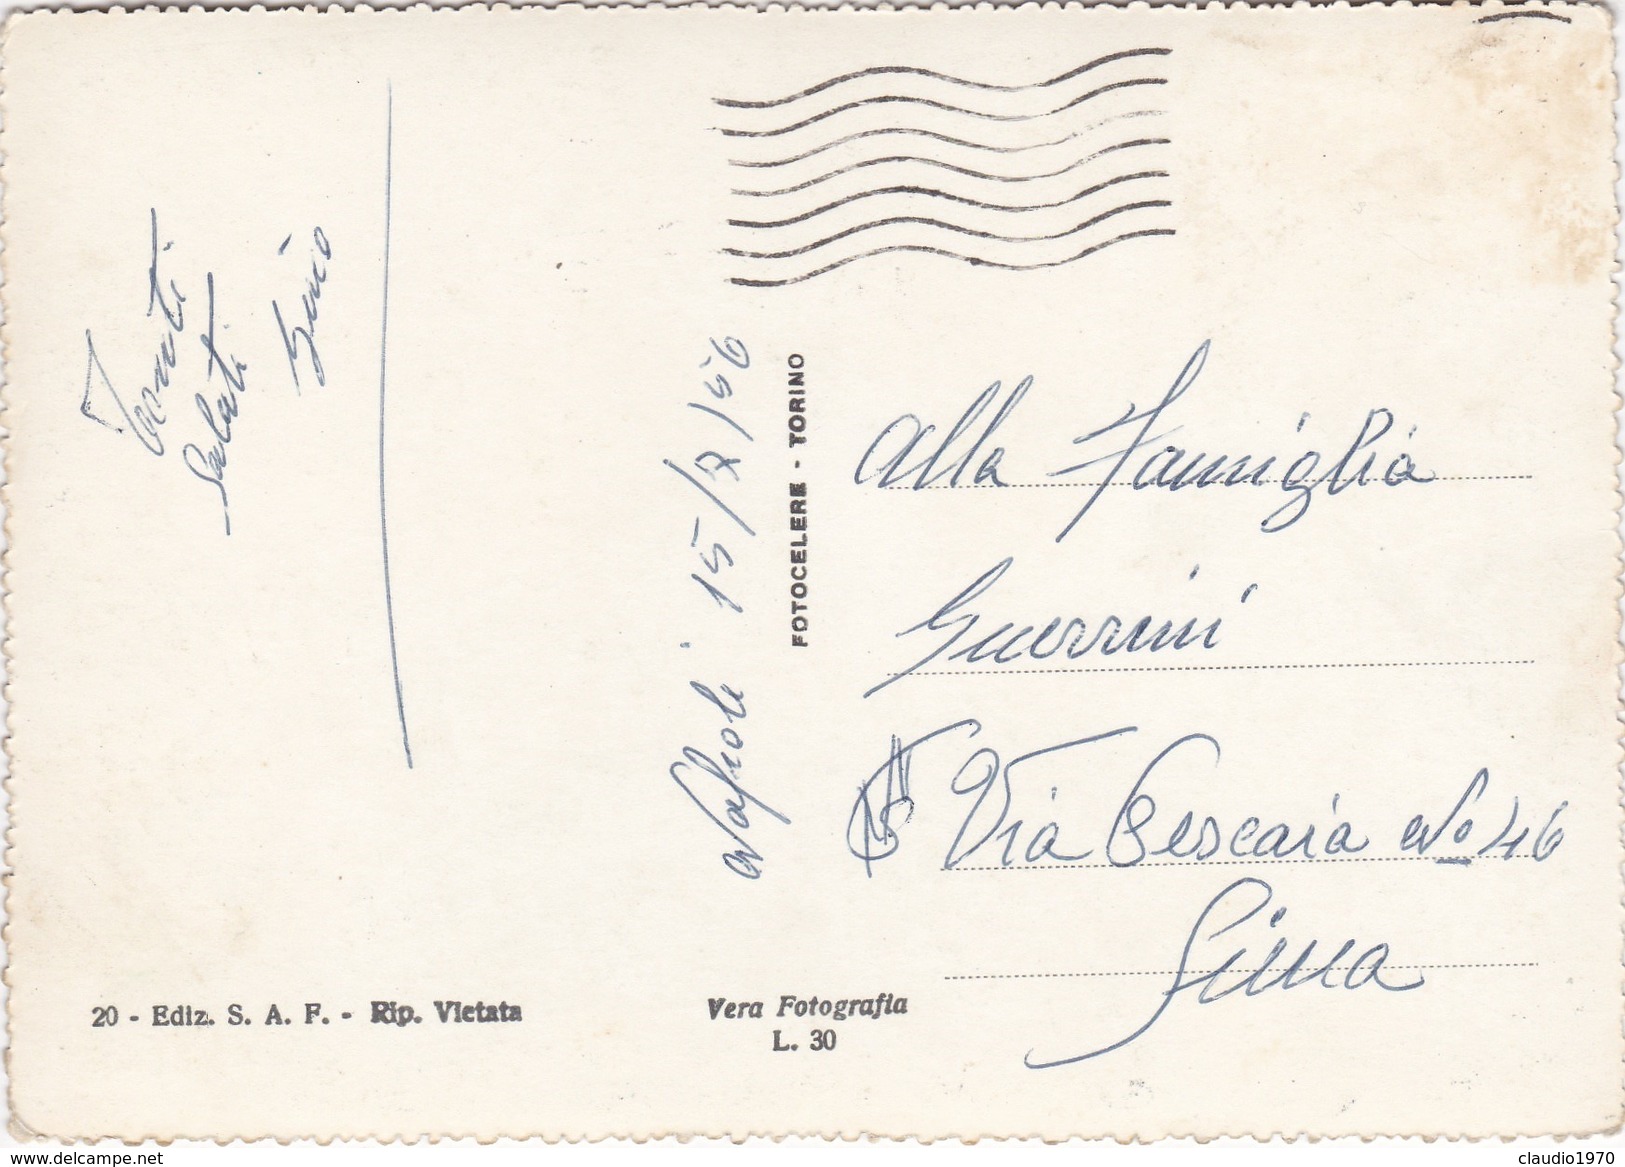 Tanti
Saluti
Gino
Napoli 15/7/56
FOTOCELERE - TORINO
Alla Famiglia
Guerrini
Via Pescaia No 46
Siena
20 - Ediz. S. A. F. - Rip. Vietata
Vera Fotografia
L. 30
www.delcampe.net
claudio1970